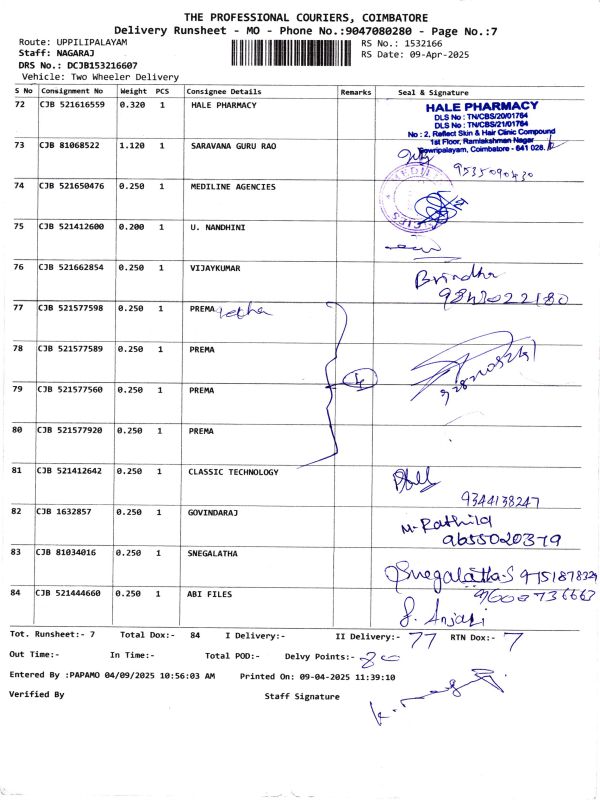 THE PROFESSIONAL COURIERS, COIMBATORE
Delivery Runsheet - MO - Phone No.:9047080280 - Page No.:7
Route: UPPILIPALAYAM RS No.: 1532166
Staff: NAGARAJ RS Date: 09-Apr-2025
DRS No.: DCJB153216607
Vehicle: Two Wheeler Delivery
S No Consignment No Weight PCS Consignee Details Remarks Seal & Signature
72 CJB 521616559 0.320 1 HALE PHARMACY
HALE PHARMACY
DLS No : TN/CBS/20/01764
DLS No : TN/CBS/21/01764
No : 2, Reflect Skin & Hair Clinic Compound
1st Floor, Ramlakshman Nagar
Sowripalayam, Coimbatore - 641 028.
73 CJB 81068522 1.120 1 SARAVANA GURU RAO
9535090430
74 CJB 521650476 0.250 1 MEDILINE AGENCIES
75 CJB 521412600 0.200 1 U. NANDHINI
76 CJB 521662854 0.250 1 VIJAYKUMAR Brindha
77 CJB 521577598 0.250 1 PREMA
78 CJB 521577589 0.250 1 PREMA
4
79 CJB 521577560 0.250 1 PREMA
80 CJB 521577920 0.250 1 PREMA
81 CJB 521412642 0.250 1 CLASSIC TECHNOLOGY
9344138247
82 CJB 1632857 0.250 1 GOVINDARAJ M. Rathila
9655020379
83 CJB 81034016 0.250 1 SNEGALATHA
Snegalatha.S 9751878329
84 CJB 521444660 0.250 1 ABI FILES 9600736663
Tot. Runsheet:- 7 Total Dox:- 84 I Delivery:- II Delivery:- 77 RTN Dox:- 7
Out Time:- In Time:- Total POD:- Delvy Points:- 80
Entered By :PAPAMO 04/09/2025 10:56:03 AM Printed On: 09-04-2025 11:39:10
Verified By Staff Signature